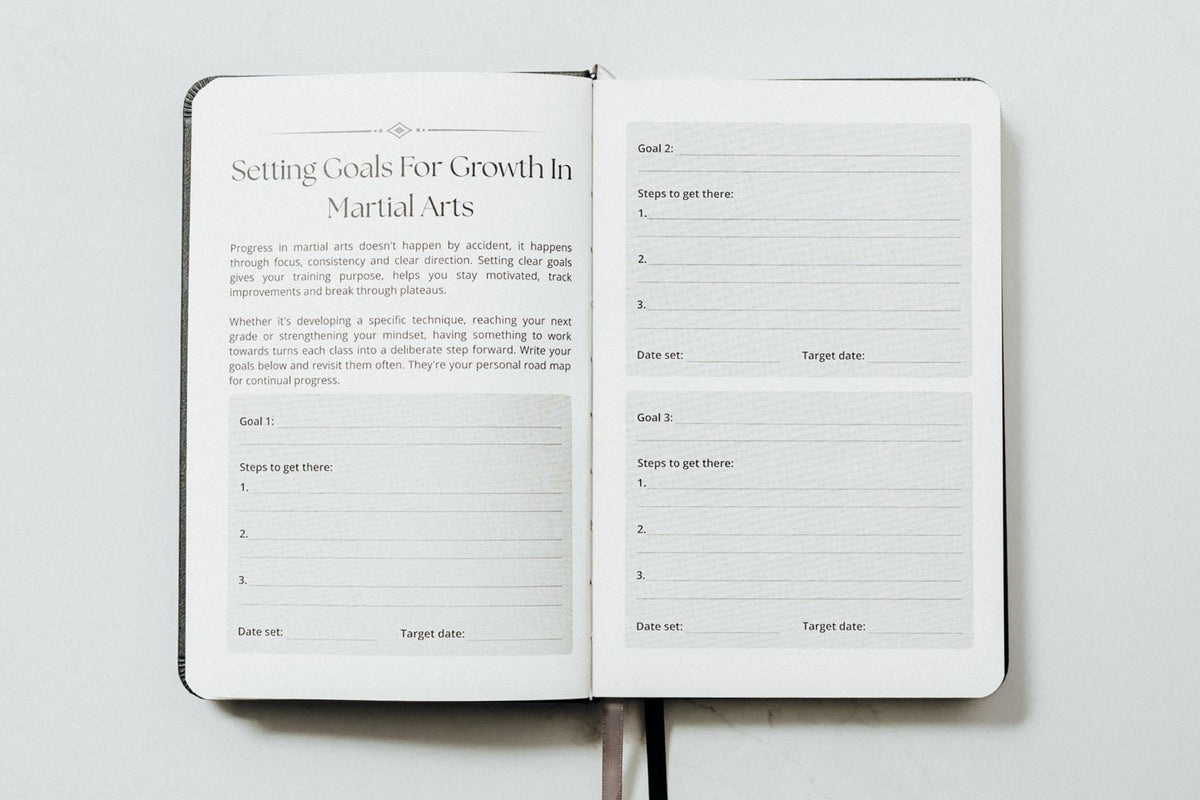 Setting Goals For Growth In
Martial Arts
Progress in martial arts doesn't happen by accident, it happens
through focus, consistency and clear direction. Setting clear goals
gives your training purpose, helps you stay motivated, track
improvements and break through plateaus.
Whether it's developing a specific technique, reaching your next
grade or strengthening your mindset, having something to work
towards turns each class into a deliberate step forward. Write your
goals below and revisit them often. They're your personal road map
for continual progress.
Goal 1:
Steps to get there:
1.
2.
3.
Date set: Target date:
Goal 2:
Steps to get there:
1.
2.
3.
Date set: Target date:
Goal 3:
Steps to get there:
1.
2.
3.
Date set: Target date: